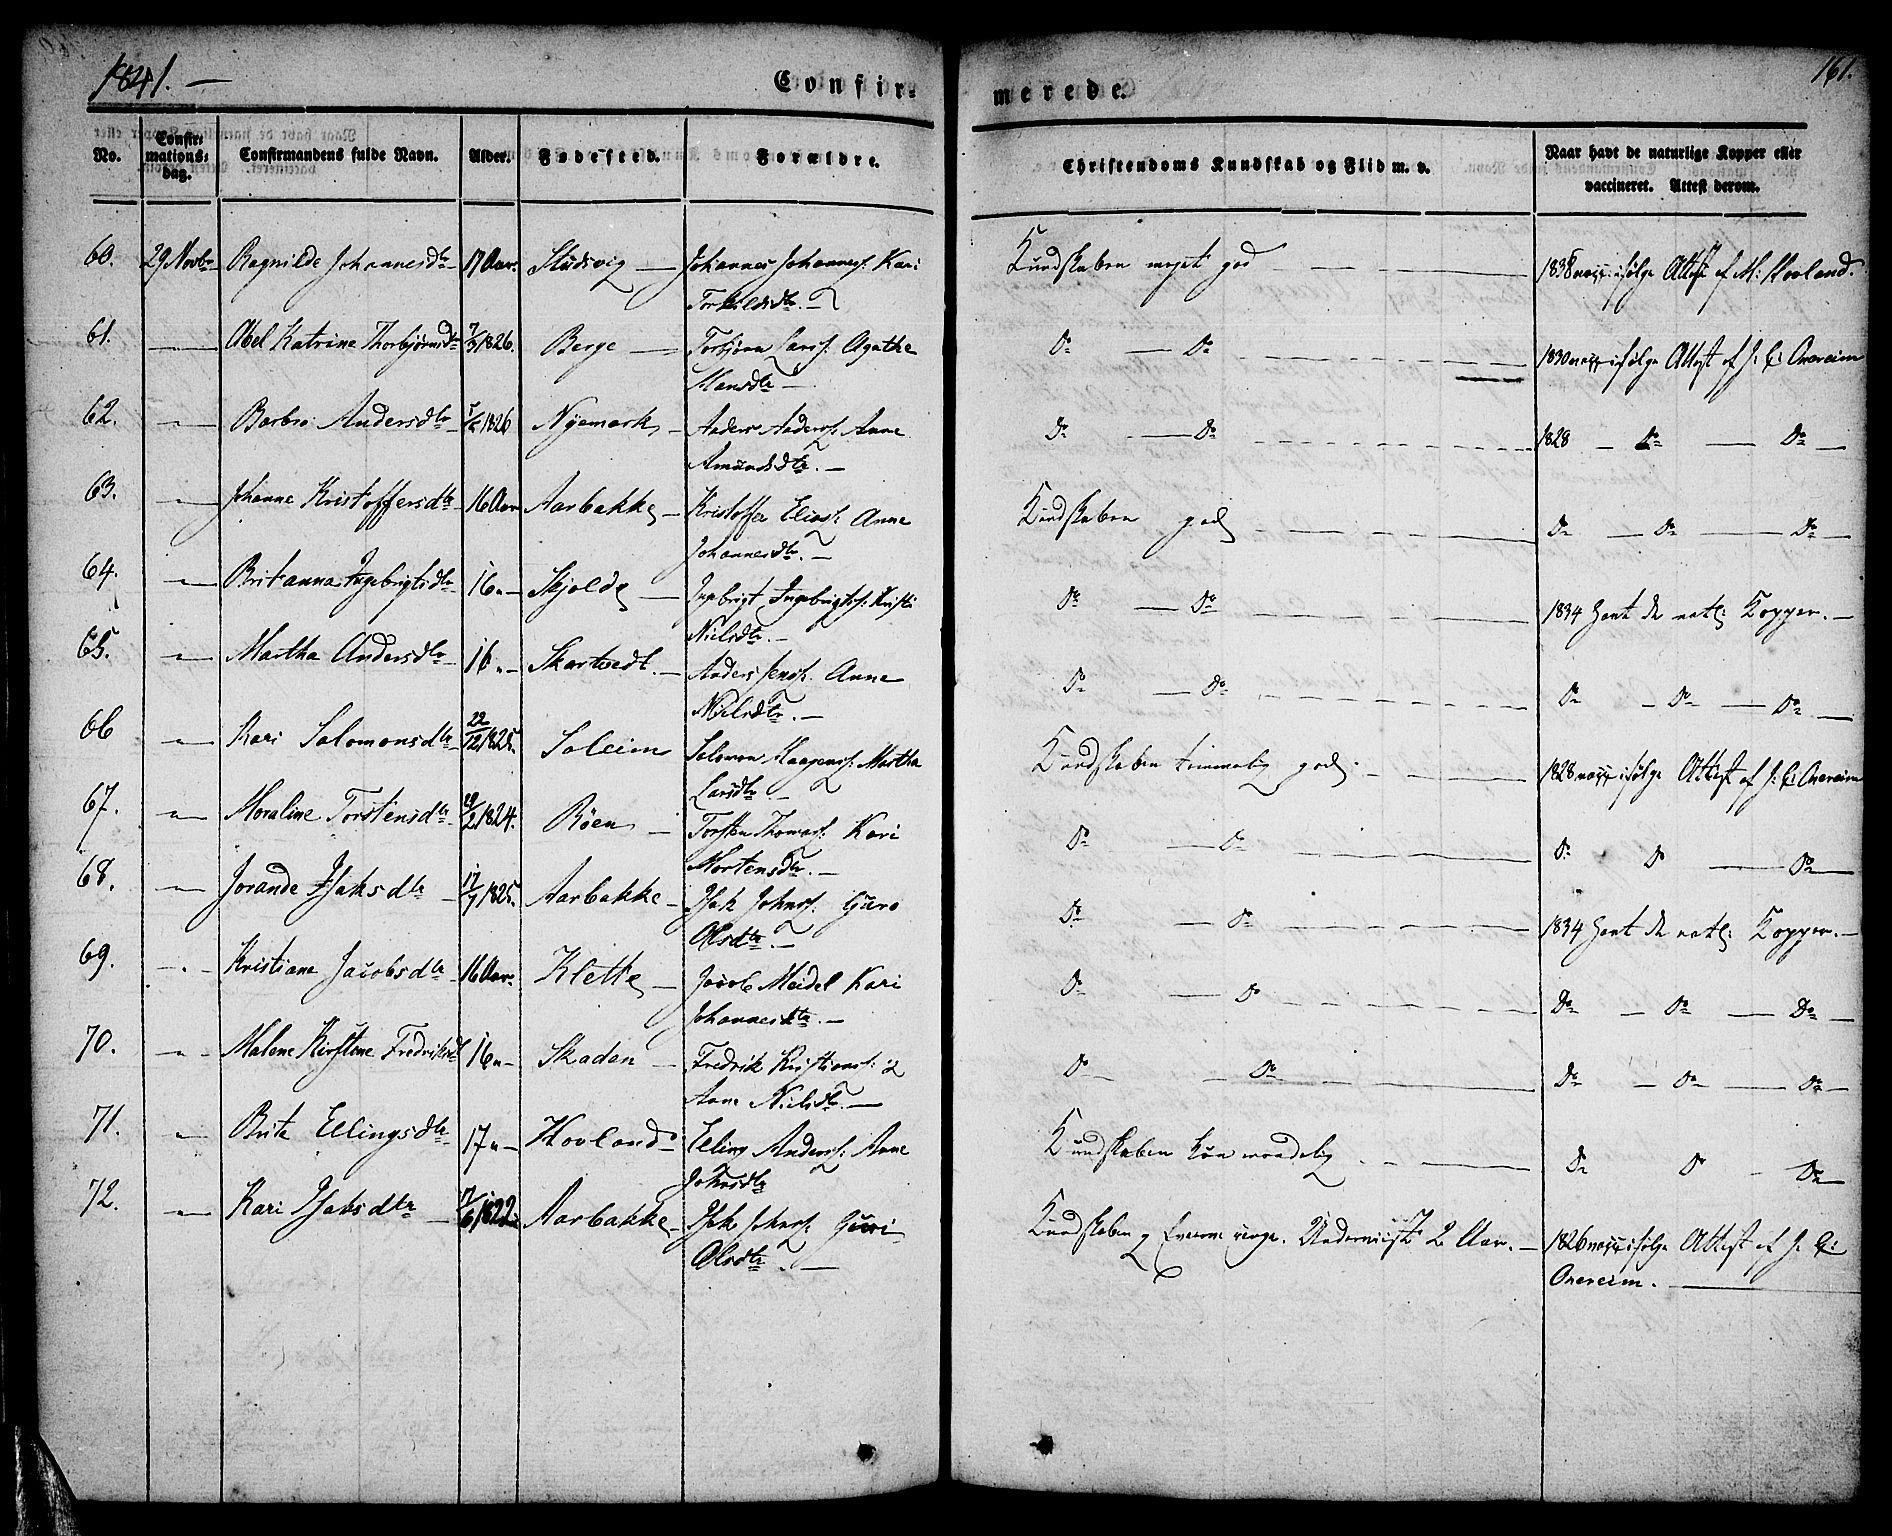 1841. –
Confir-
merede.
161.
No.
Confir-
mations-
dag.
Confirmandens fulde Navn.
Alder.
Fødested.
Forældre.
Christendoms Kundskab og Flid m. v.
Naar havt de naturlige Kopper eller
vaccineret. Attest derom.
60. 29 Novbr Ragnilde Johannesdtr 17 Aar. Stüdsvig Johannes Johanness. Kari Kundskaben meget god 1838 vacc. ifølge Attest af M. Hovland.
Torkildsdtr.
61. Abel Katrine Thorbjørnsdtr 7/3 1826. Berge Torbjørn Larss. Agathe Do Do 1830 vacc. ifølge Attest af J. C: Anereim
Mansdtr
62. " Barbro Andersdtr 1826 Nyemark Anders Anderss. Anne Do Do 1828 Do Do
Amundsdtr.
63. " Johanne Kristoffersdtr 16 Aar Aarbakke Kristoffer Eliass. Anne Kundskaben god Do Do Do
Johannesdtr.
64. " Britanna Ingebrigtsdtr 16 " Skjolde Ingebrigt Ingebrigtss. Kristi Do Do 1834 havt de natl: Kopper.
Nielsdtr.
65. " Martha Andersdtr 16 " Skartvedt. Anders Jenss. Anne Do Do Do Do Do
Nielsdtr.
66 " Kari Salomonsdtr 22/12 1825. Soleim Salomon Haagenss. Martha Kundskaben temmelig god. 1828 vacc. ifølge Attest af J. C: Anereim
Larsdtr.
67. " Moraline Torstensdtr 19/2 1824. Röen Torsten Thomass. Kari Do Do Do Do Do
Mortensdtr.
68. " Jorande Isaksdtr 17/7 1825. Aarbakke Isak Johnss. Guro Do Do 1834 havt de natl: Kopper.
Olsdtr.
69. " Kristiane Jacobsdtr 16 Aar. Klette Jacob Meidel Kari Do Do Do Do Do
Johannesdtr.
70. " Malene Kirstine Fredriksdtr 16 " Skadan Fredrik Kristians. Do Do Do Do Do
Anne Nielsdtr.
71. " Brita Ellingsdtr 17 " Hovland Elling Anderss. Anne Kundskaben kun maadelig Do Do Do
Johnsdtr
72. " Kari Isaksdtr 17/6 1822 Aarbakke Isak Johnss. Guri Kundskaben og Evnerne ringe. Underviist 2 Aar. 1826 vacc. ifølge Attest af J. C:
Olsdtr. Anereim.